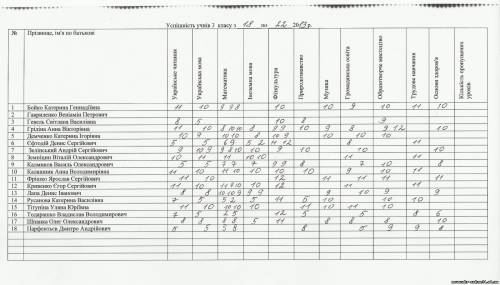 Успішність учнів 7 класу з 18 по 22 2013 р.
№ Прізвище, ім'я по батькові Українське читання Українська мова Математика Іноземна мова Фізкультура Природознавство Музика Громадянська освіта Образотворче мистецтво Трудове навчання Основи здоров'я Кількість пропущених уроків
1 Бойко Катерина Геннадіївна 11 10 9 9 8 10 10 9 10 11 10
2 Гавриленко Веніамін Петрович
3 Гевель Світлана Василівна 8 5 10 8 9
4 Грідіна Анна Вікторівна 11 10 8 10 10 8 9 9 10 9 8 9 12 10
5 Демченко Катерина Ігорівна 10 9 10 10 8 10 9 10 10 10
6 Сергійович 5 5 6 9 5 2 11 12 8 11
7 Зелінський Андрій Сергійович 9 10 9 9 8 10 10 9 10 10 10
8 Земніцин Віталій Олександрович 10 11 11 10 10 11 11
9 Калмиков Василь Олександрович 5 5 7 7 7 9 9 8 7 10 8
10 Калашник Анна Володимирівна 11 10 11 10 10 10 10 9 10 11
11 Ярослав Сергійович 11 10 12 11 11 11 11
12 Кривенко Єгор Сергійович 11 10 11 8 10 10 12 11 11
13 Лапа Денис Іванович 8 8 10 10 9 9 9 9 10 9 9
14 Русанова Катерина Василівна 7 5 5 2 5 11 5 10 10 10
15 Тітуніна Уляна Юріївна 11 10 10 10 10 11 10 11 10
16 Тодаренко Владислав Володимирович 7 5 2 5 12 5 5 8 6
17 Шпанка Олег Олександрович 8 8 8 8 5 11 8 8 8 8 10
18 Парфентьєв Дмитро Андрійович 5 5 5 8 8 5 9 9 8